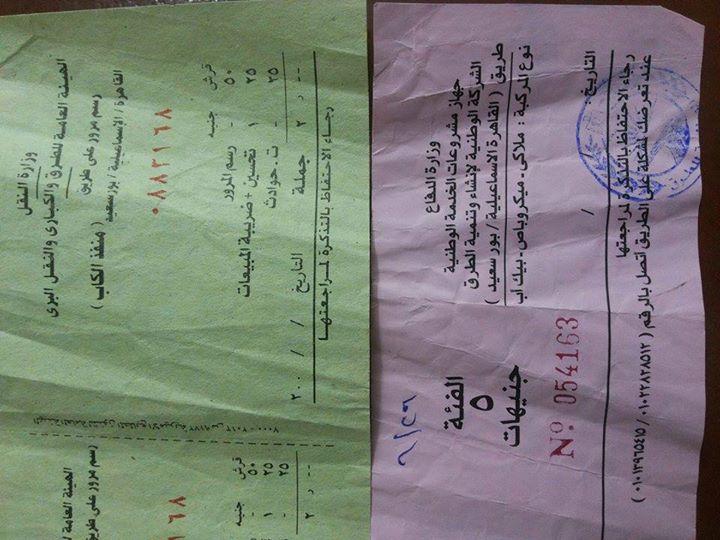 وزارة النقل
الهيئة العامة للطرق والكبارى والنقل البرى
رسم مرور على طريق
القاهرة / الاسماعيلية / بورسعيد
( منفذ الكاب )
٠٨٨٣١٦٨
قرش جنيه
٥٠ - رسم المرور
٢٥ ١ تحسين + ضريبة المبيعات
٢٥ - ت . حوادث
-- ر ٢ جملة التاريخ / / ٢٠٠
رجاء الاحتفاظ بالتذكرة لمراجعتها
الهيئة العامة ل
رسم مرور على طريق
١٦٨
قرش جنيه
٥٠ -
٢٥ ١
٢٥ -
-- ر ٢
وزارة الدفاع
جهاز مشروعات الخدمة الوطنية
الشركة الوطنية لإنشاء وتنمية الطرق
طريق ( القاهرة الاسماعيلية / بورسعيد )
نوع المركبة : ملاكى - ميكروباص - بيك اب
الفئة
٥
جنيهات
Nº 054163
التاريخ : /
رجاء الاحتفاظ بالتذكرة لمراجعتها
عند تعرضك لمشكلة على الطريق اتصل بالرقم ( ٠١٠٢٢٨٢٨٥١٢ / ٠١٠١٣٩٦٥٤١٥ )